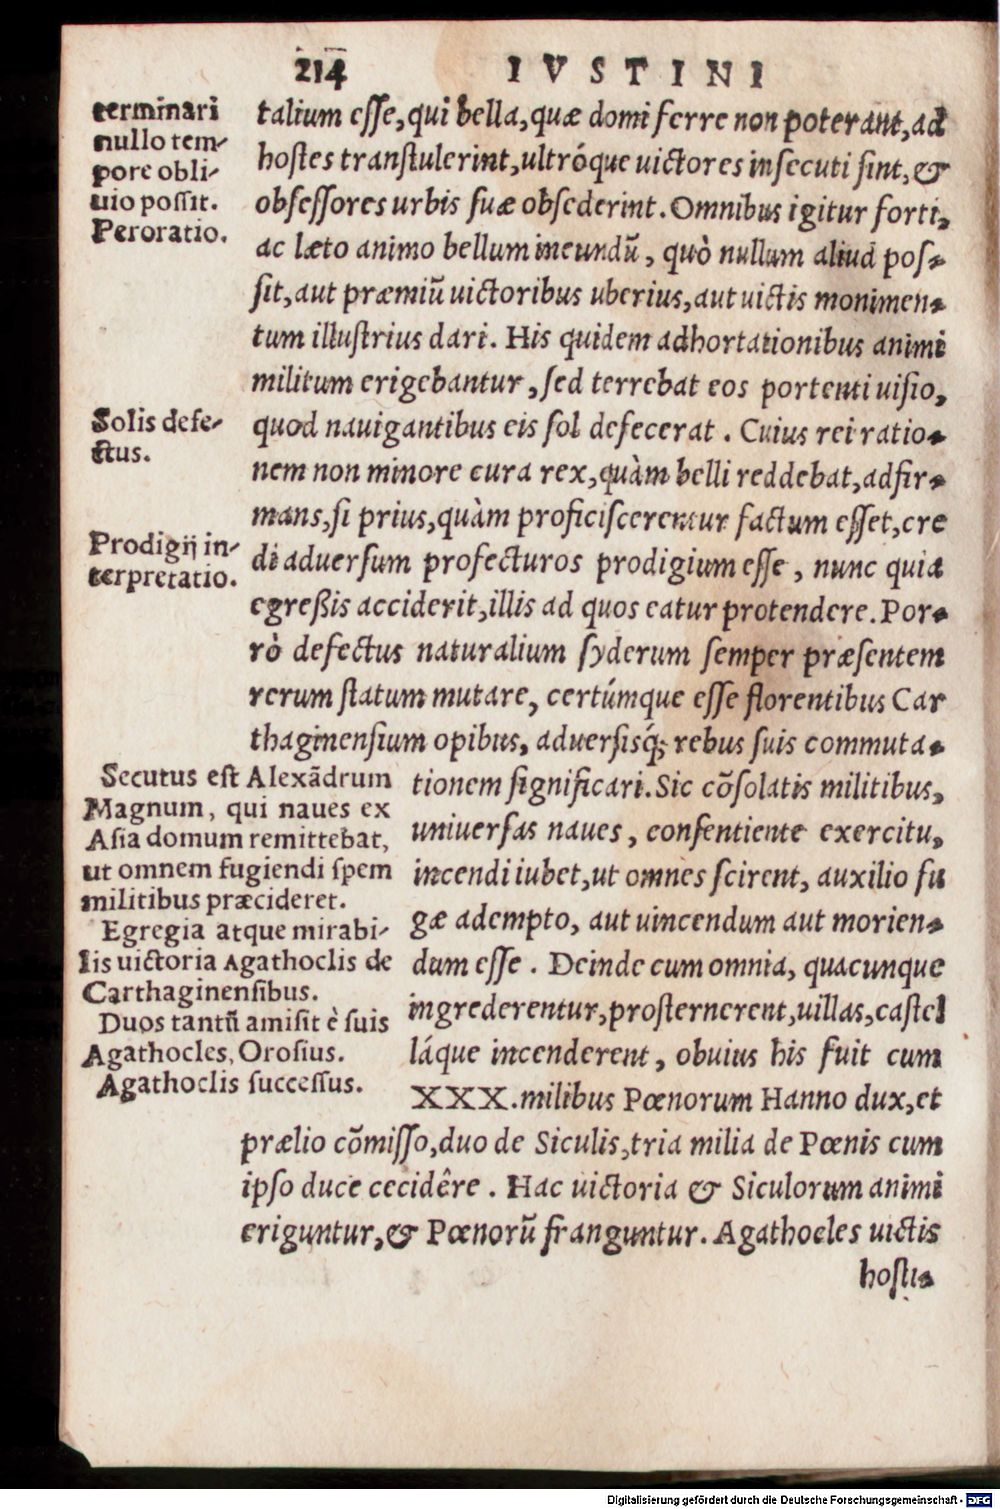 214 IVSTINI
terminari
nullo tem-
pore obli-
uio possit.
Peroratio.
talium esse, qui bella, quæ domi ferre non poterant, ad
hostes transtulerint, ultróque uictores insecuti sint, &
obsessores urbis suæ obsederint. Omnibus igitur forti,
ac læto animo bellum ineundũ, quò nullum aliud pos-
sit, aut præmiũ uictoribus uberius, aut uictis monimen-
tum illustrius dari. His quidem adhortationibus animi
militum erigebantur, sed terrebat eos portenti uisio,
Solis defe-
ctus.
quod nauigantibus eis sol defecerat. Cuius rei ratio-
nem non minore cura rex, quàm belli reddebat, adfir-
mans, si prius, quàm proficiscerentur factum esset, cre
Prodigij in-
terpretatio.
di aduersum profecturos prodigium esse, nunc quia
egreßis acciderit, illis ad quos eatur protendere. Por-
rò defectus naturalium syderum semper præsentem
rerum statum mutare, certúmque esse florentibus Car
thaginensium opibus, aduersisq́; rebus suis commuta-
Secutus est Alexãdrum
Magnum, qui naues ex
Asia domum remittebat,
ut omnem fugiendi spem
militibus præcideret.
Egregia atque mirabi-
lis uictoria Agathoclis de
Carthaginensibus.
Duos tantũ amisit è suis
Agathocles, Orosius.
Agathoclis successus.
tionem significari. Sic cõsolatis militibus,
uniuersas naues, consentiente exercitu,
incendi iubet, ut omnes scirent, auxilio fu
gæ adempto, aut uincendum aut morien-
dum esse. Deinde cum omnia, quacunque
ingrederentur, prosternerent, uillas, castel
láque incenderent, obuius his fuit cum
XXX. milibus Pœnorum Hanno dux, et
prælio cõmisso, duo de Siculis, tria milia de Pœnis cum
ipso duce cecidêre. Hac uictoria & Siculorum animi
eriguntur, & Pœnorũ franguntur. Agathocles uictis
hosti-
Digitalisierung gefördert durch die Deutsche Forschungsgemeinschaft - DFG